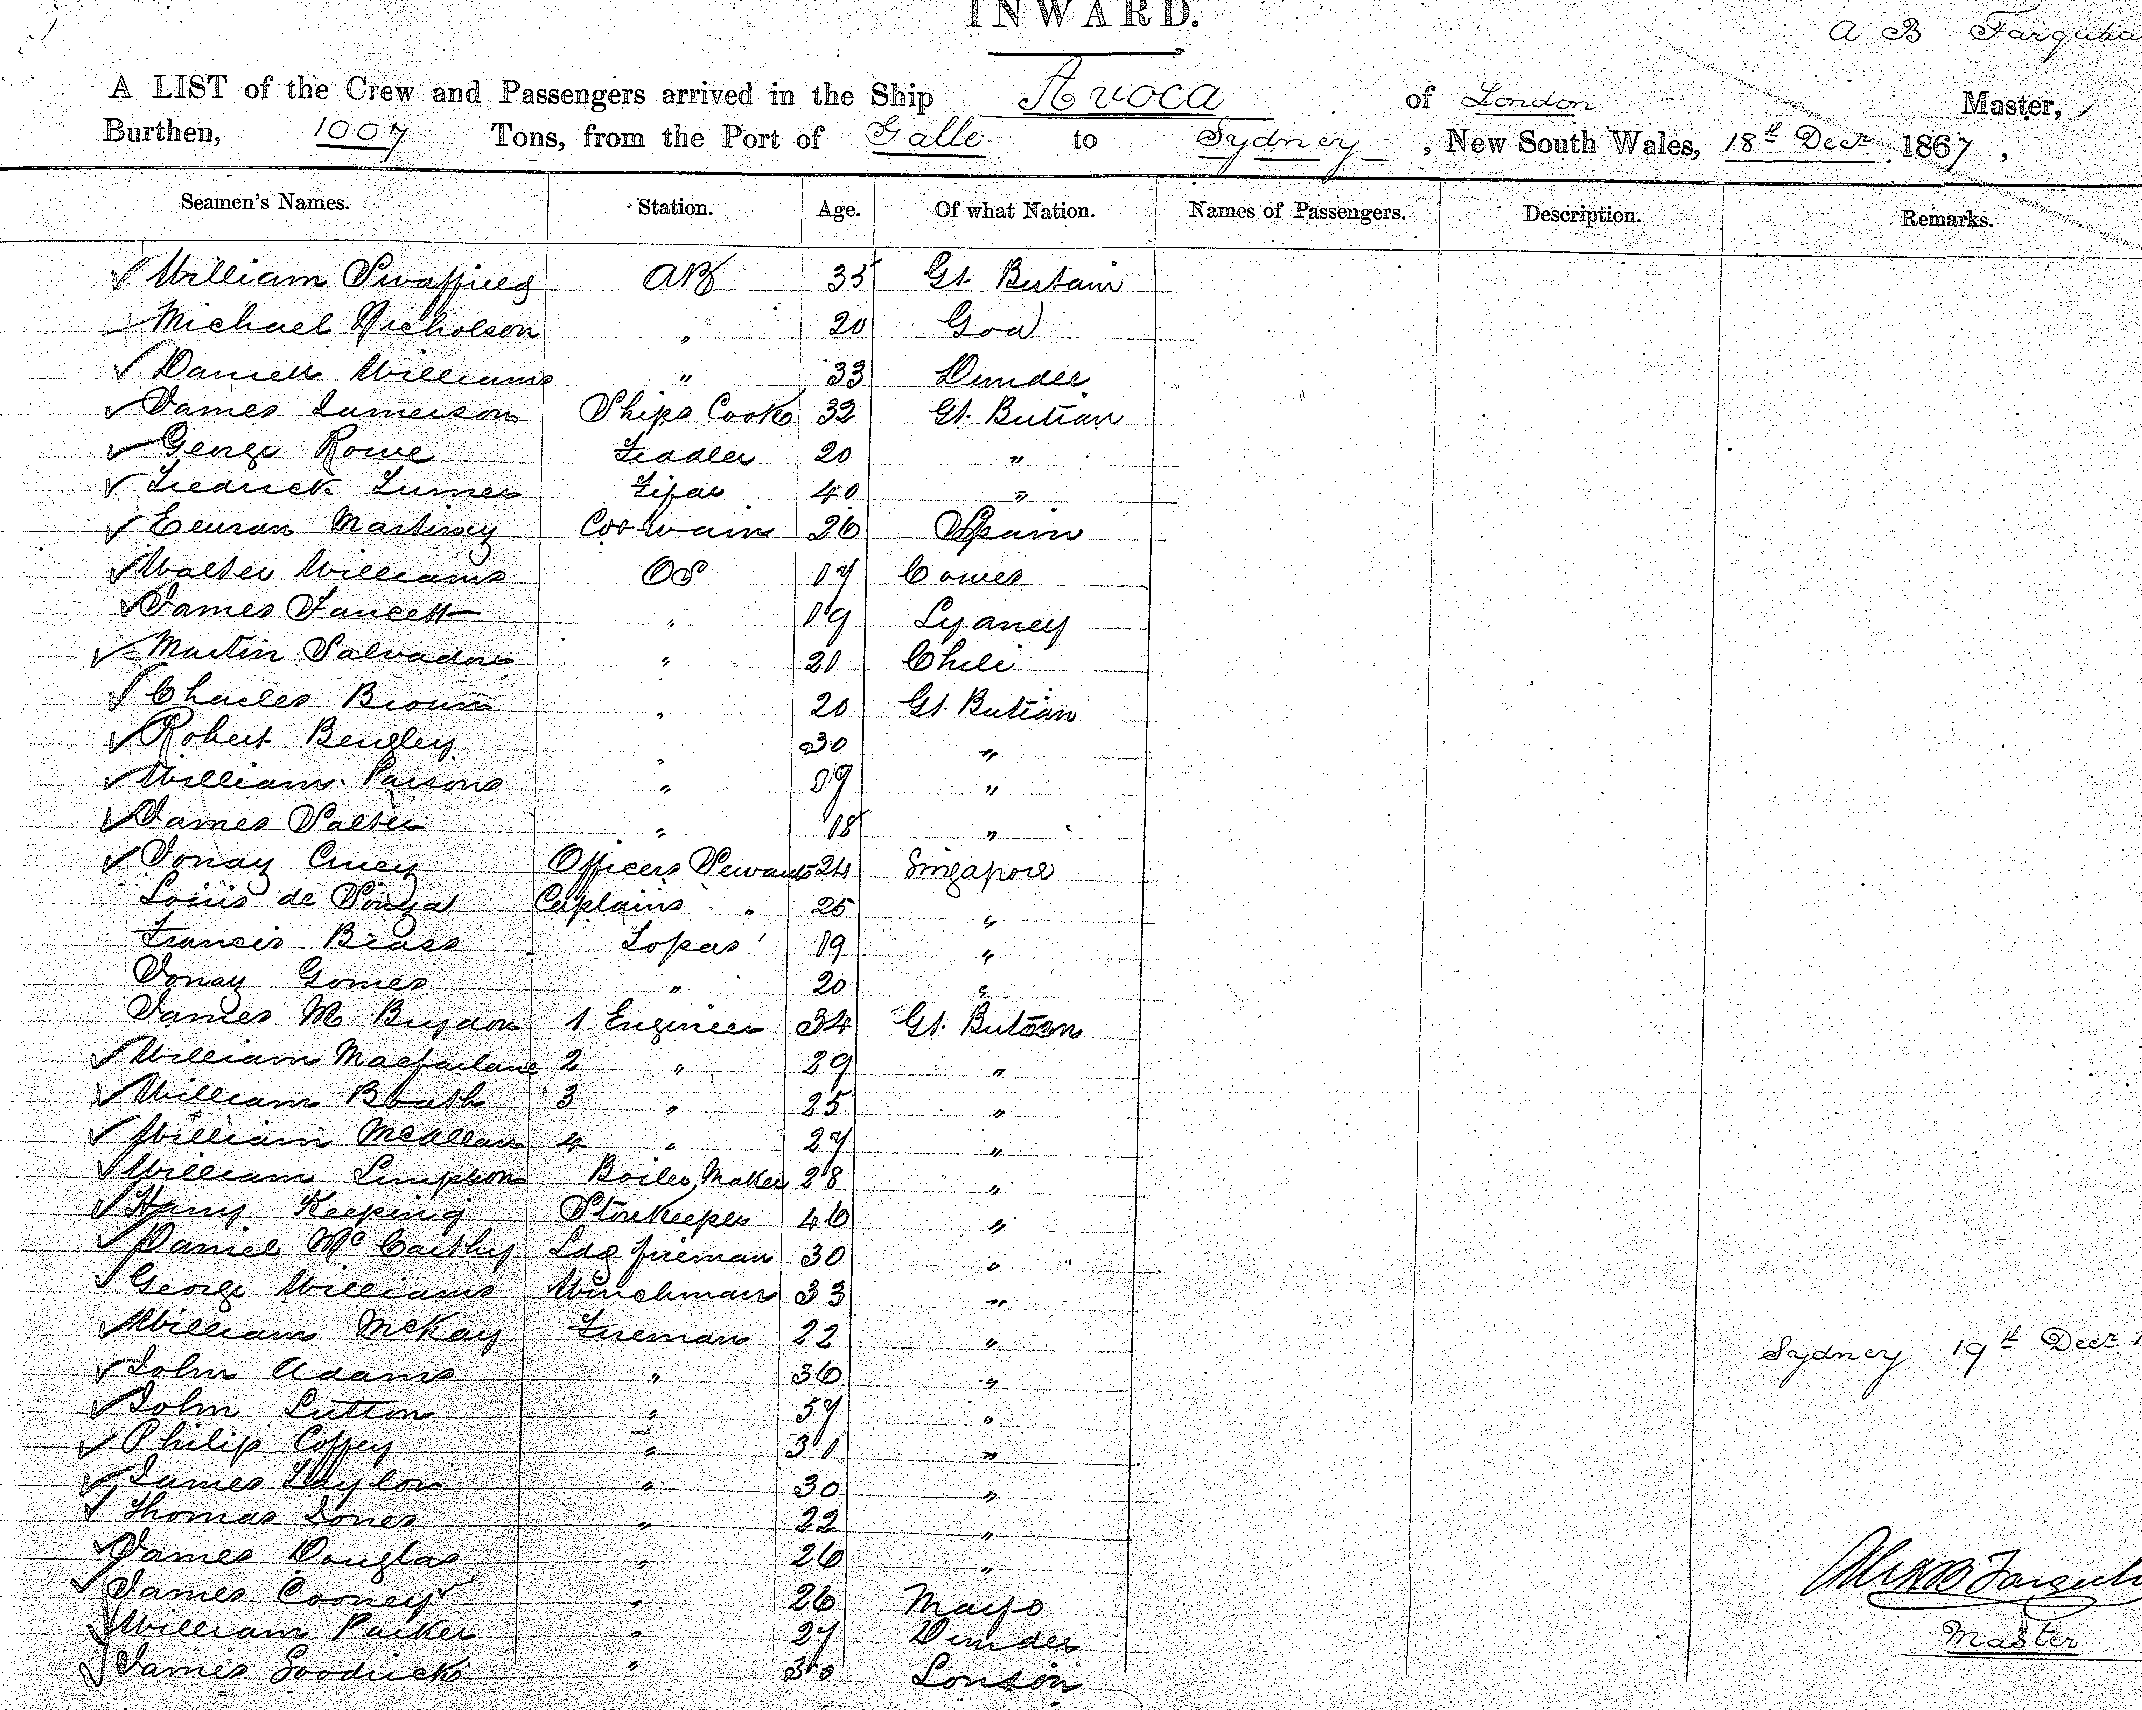 INWARD.
A B Farquha
A LIST of the Crew and Passengers arrived in the Ship Avoca of London Master,
Burthen, 1007 Tons, from the Port of Galle to Sydney, New South Wales, 18th Decr 1867,
Seamen's Names. Station. Age. Of what Nation. Names of Passengers. Description. Remarks.
William Swaffield AB 35 Gt. Britain
Michael Nicholson " 20 Goa
Daniell Williams " 33 Dundee
James Jamerson Ships Cook 32 Gt. Britian
George Rowe 20 "
Fredrick Turner 40 "
Martiney Coxwain 26 Spain
Walter Williams OS 17 Cowes
James Faucett " 19 Sydney
Martin Salvadore " 20 Chili
Charles Brown " 20 Gt. Britian
Robert Bengley " 30 "
William Parsons " 19 "
James Salter " 18 "
Officers Stewards 24 Singapore
Louis de Souza Captains " 25 "
Francis Brass Topas 19 "
Gomes " 20 "
James M Brydon 1 Engineer 34 Gt. Britain
William Macfarlane 2 " 29 "
William Booth 3 " 25 "
William McAllan 4 " 27 "
William Simpson Boiler Maker 28 "
Harry Keeping Storekeeper 46 "
Daniel McCarthy Ldg fireman 30 "
George Williams Winchman 33 "
William McKay Fireman 22 "
John Adams " 36 "
John Sutton " 37 "
Philip Coffey " 31 "
James Taylor " 30 "
Thomas Jones " 22 "
James Douglas " 26 "
James Cooney " 26 Mayo
William Parker " 27 Dundee
James Goodrick " 30 London
Sydney 19th Decr 1
Alexr B Farquh
Master